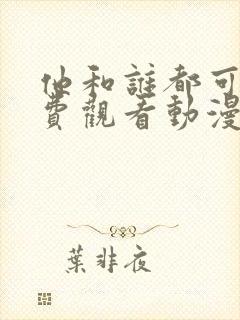 他和誰都可
費觀看動漫
葉非夜